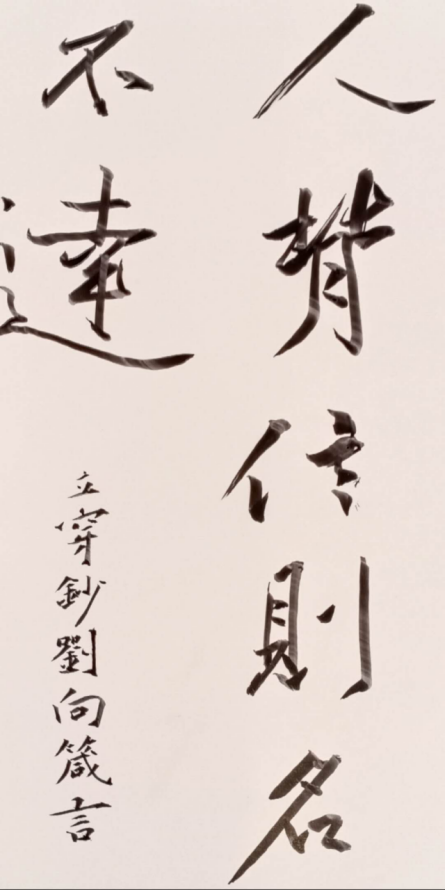 人背信則名
不達
立穿鈔劉向箴言